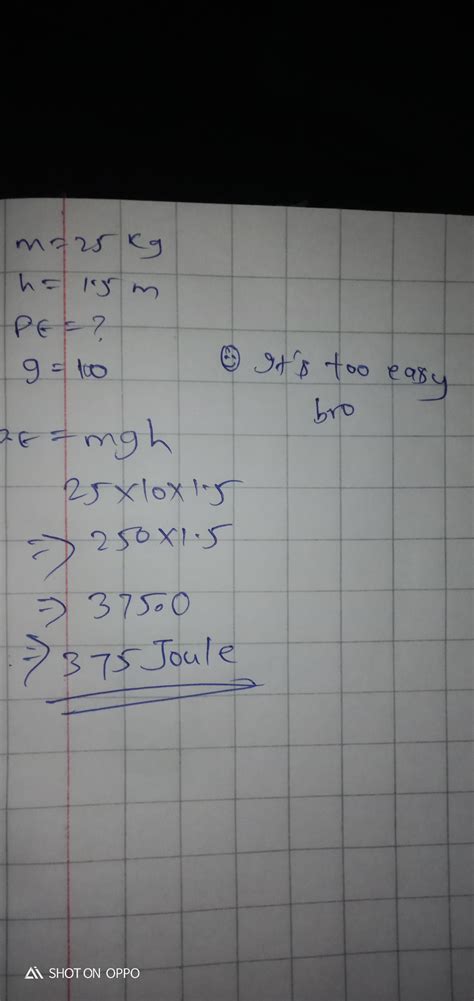 m = 25 kg
h = 1.5 m
PE = ?
g = 100
☺ It's too easy
bro
PE = mgh
25×10×1.5
⇒ 250×1.5
⇒ 375.0
⇒ 375 Joule
SHOT ON OPPO